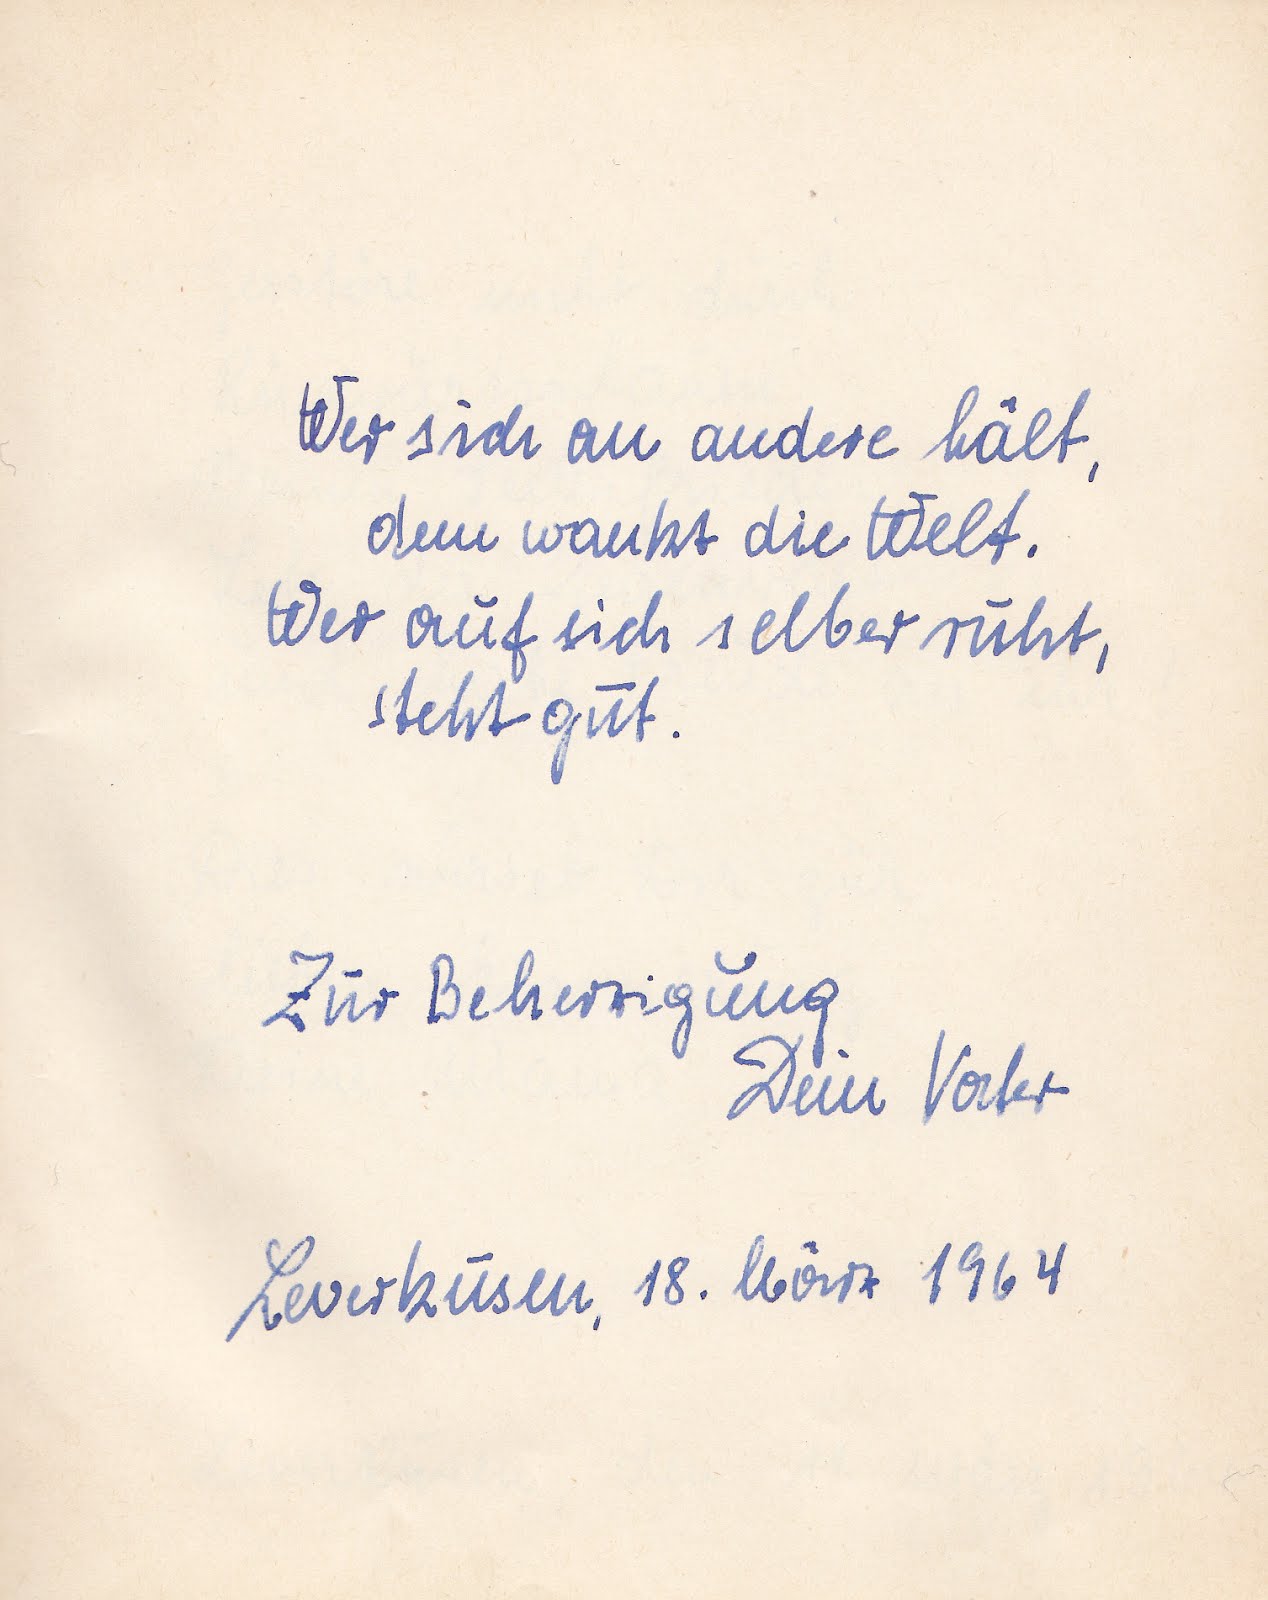 Wer sich an andere hält,
dem wankt die Welt.
Wer auf sich selber ruht,
steht gut.
Zur Beherzigung
Dein Vater
Leverkusen, 18. März 1964